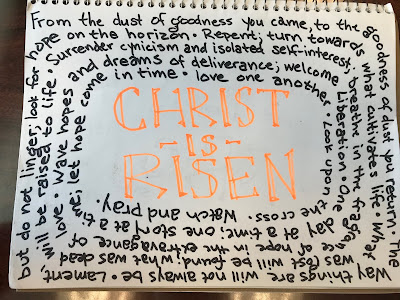 From the dust of goodness you came, to the
goodness of dust you return. The
way things are will not always be. Lament,
but do not linger; look for
hope on the horizon. Repent; turn towards
what cultivates life. What
was lost will be found; what was dead
will be raised to life.
Surrender cynicism and isolated self-interest;
breathe in the fragrance
of hope in the extravagance of
love. Wave hopes
and dreams of deliverance; welcome
Liberation. One
day at a time; one story at a
time; let hope
come in time. love one another.
Look upon the cross.
Watch and pray.
CHRIST
-IS-
RISEN